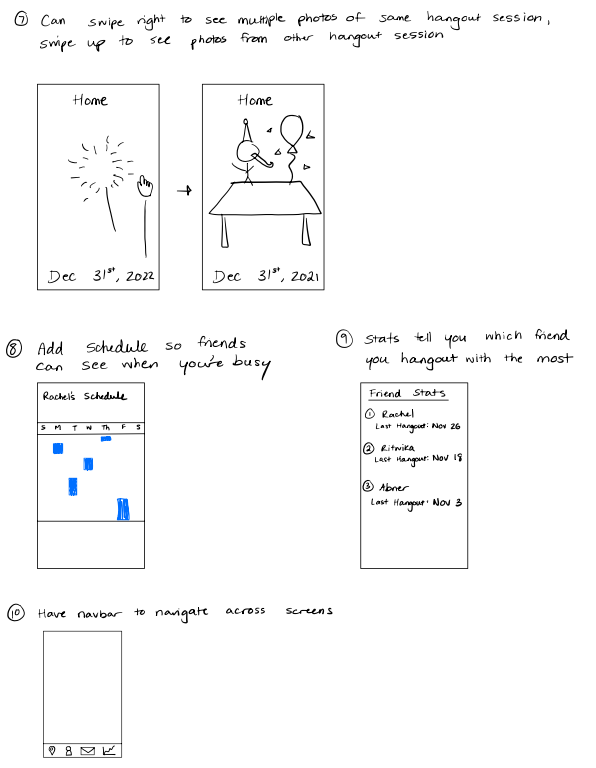 ⑦ Can swipe right to see multiple photos of same hangout session,
swipe up to see photos from other hangout session
Home
Dec 31st, 2022
Home
Dec 31st, 2021
⑧ Add schedule so friends
can see when you're busy
Rachel's Schedule
S M T W Th F S
⑨ Stats tell you which friend
you hangout with the most
Friend Stats
① Rachel
Last Hangout: Nov 26
② Ritwika
Last Hangout: Nov 18
③ Abner
Last Hangout: Nov 3
⑩ Have navbar to navigate across screens